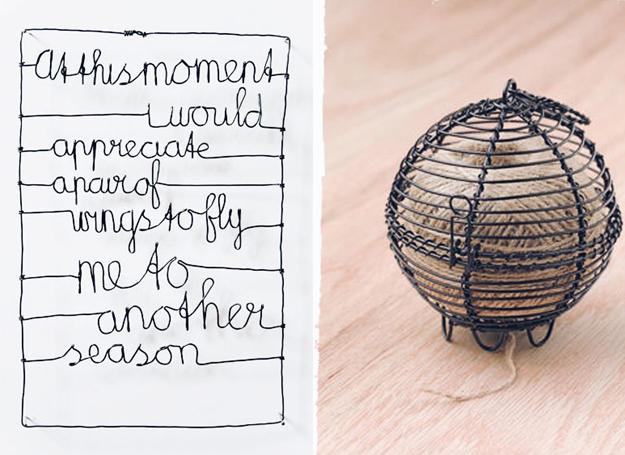 at this moment
i would
appreciate
a pair of
wings to fly
me to
another
season